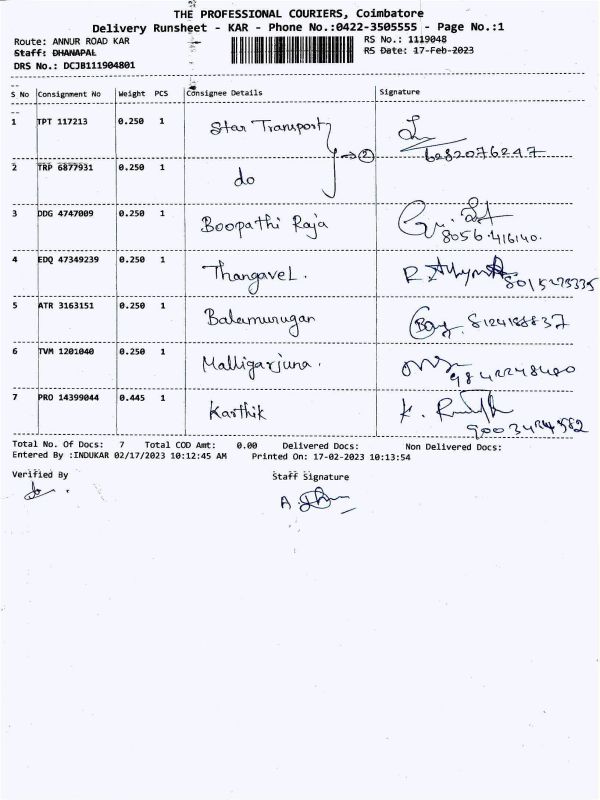 THE PROFESSIONAL COURIERS, Coimbatore
Delivery Runsheet - KAR - Phone No.:0422-3505555 - Page No.:1
Route: ANNUR ROAD KAR
RS No.: 1119048
Staff: DHANAPAL
RS Date: 17-Feb-2023
DRS No.: DCJB111904801
S No Consignment No Weight PCS Consignee Details Signature
1 TPT 117213 0.250 1 Star Transport → 2
6282076247
2 TRP 6877931 0.250 1 do
3 DDG 4747009 0.250 1 Boopathi Raja
8056.416140.
4 EDQ 47349239 0.250 1 Thangavel.
5 ATR 3163151 0.250 1 Balamurugan
6 TVM 1201040 0.250 1 Malligarjuna.
7 PRO 14399044 0.445 1 Karthik
Total No. Of Docs: 7 Total COD Amt: 0.00 Delivered Docs: Non Delivered Docs:
Entered By :INDUKAR 02/17/2023 10:12:45 AM Printed On: 17-02-2023 10:13:54
Verified By Staff Signature